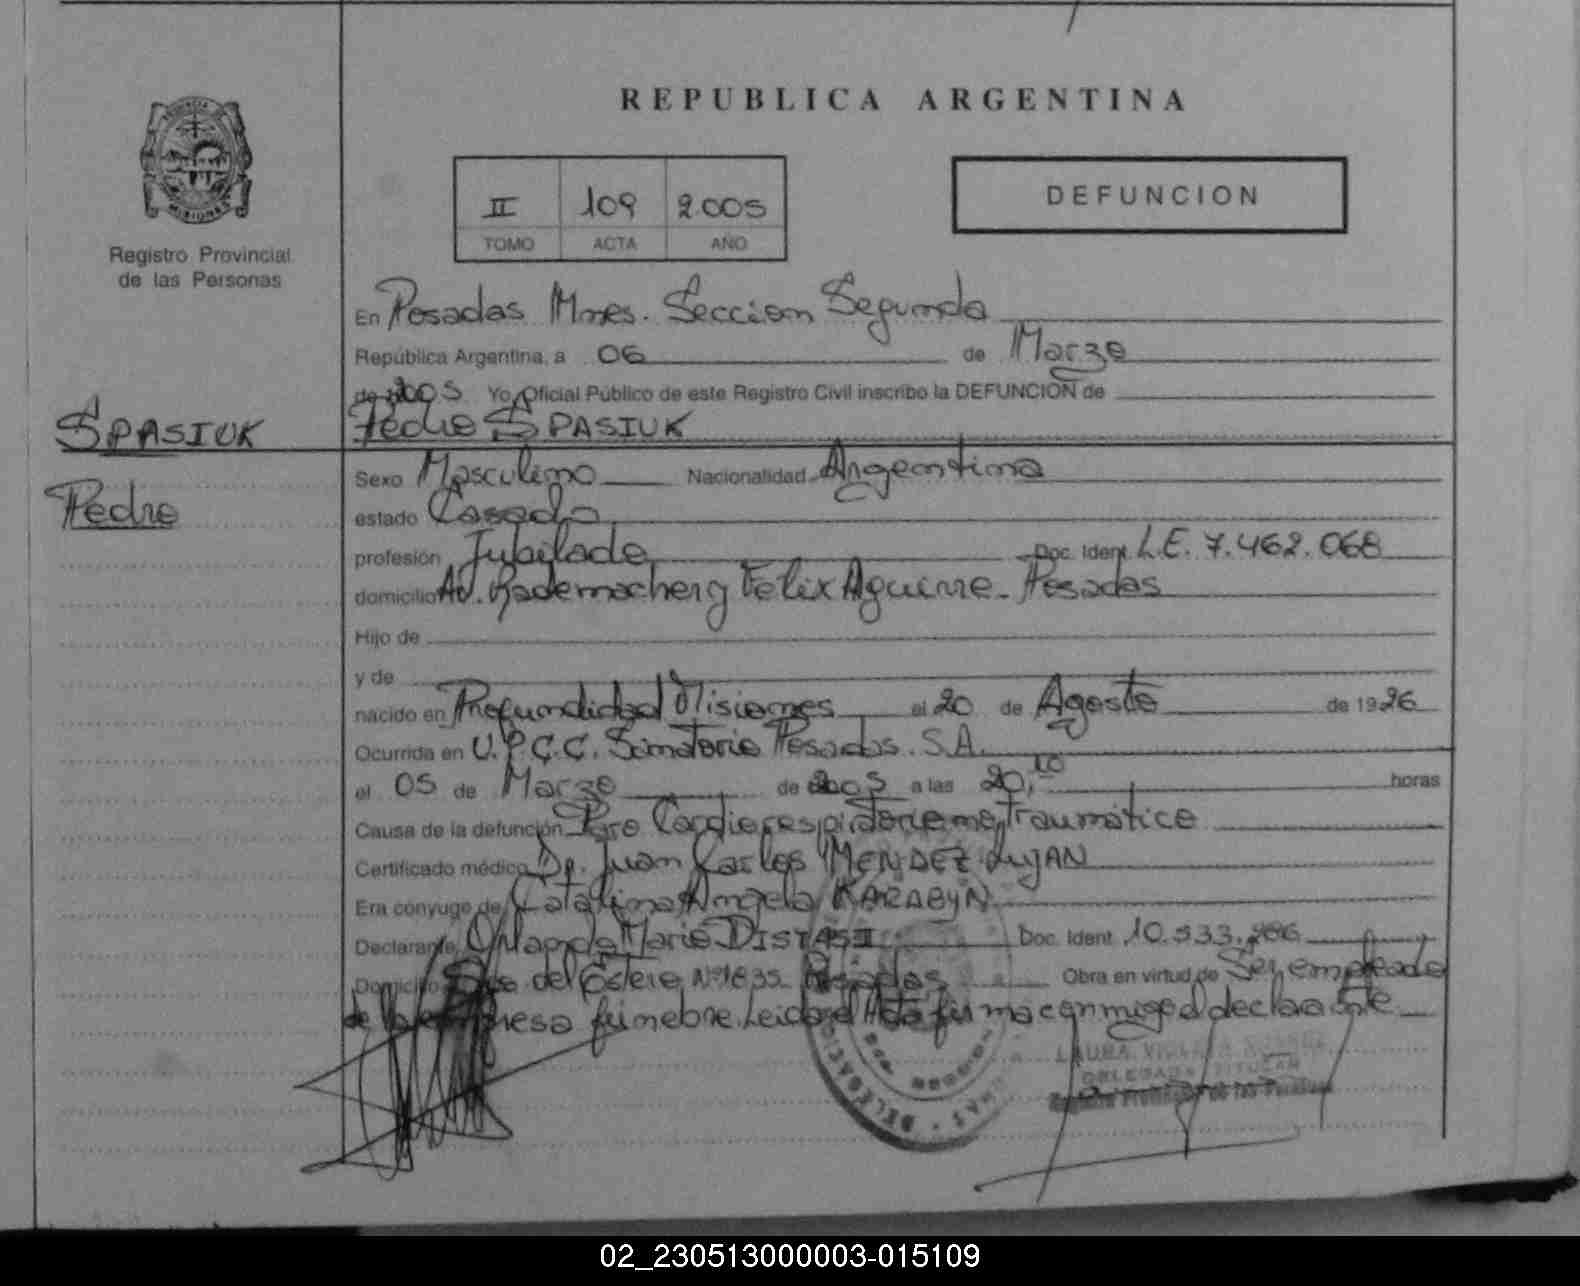 REPUBLICA ARGENTINA
PROVINCIA
MISIONES
II 109 2.005
TOMO ACTA AÑO
DEFUNCION
Registro Provincial
de las Personas
En Posadas Mnes. Seccion Segunda
República Argentina, a 06 de Marzo
de 2005 Yo, Oficial Público de este Registro Civil inscribo la DEFUNCION de
SPASIUK
Pedro SPASIUK
Pedro
Sexo Masculino Nacionalidad Argentina
estado Casado
profesión Jubilado Doc. Ident. L.E. 7.462.068
domicilio Av. Rademacher y Felix Aguirre - Posadas
Hijo de
y de
nacido en Profundidad Misiones el 20 de Agosto de 1926
Ocurrida en U.P.C.C. Sanatorio Posadas. S.A.
el 05 de Marzo de 2005 a las 20,10 horas
Causa de la defunción Paro Cardiorespiratorio no traumático
Certificado médico Dr. Juan Carlos MENDEZ LUJAN
Era cónyuge de Catalina Angela KARABYN
Declarante Orlando Mario DISTASI Doc. Ident. 10.533.
Domicilio Sgo del Estero Nº 1835 Posadas Obra en virtud de Ser empleado
de la empresa fúnebre. Leida el Acta firma conmigo el declarante
LAURA VIOLETA
DELEGADA TITULAR
Registro Provincial de las Personas
DELEGACI
02_230513000003-015109